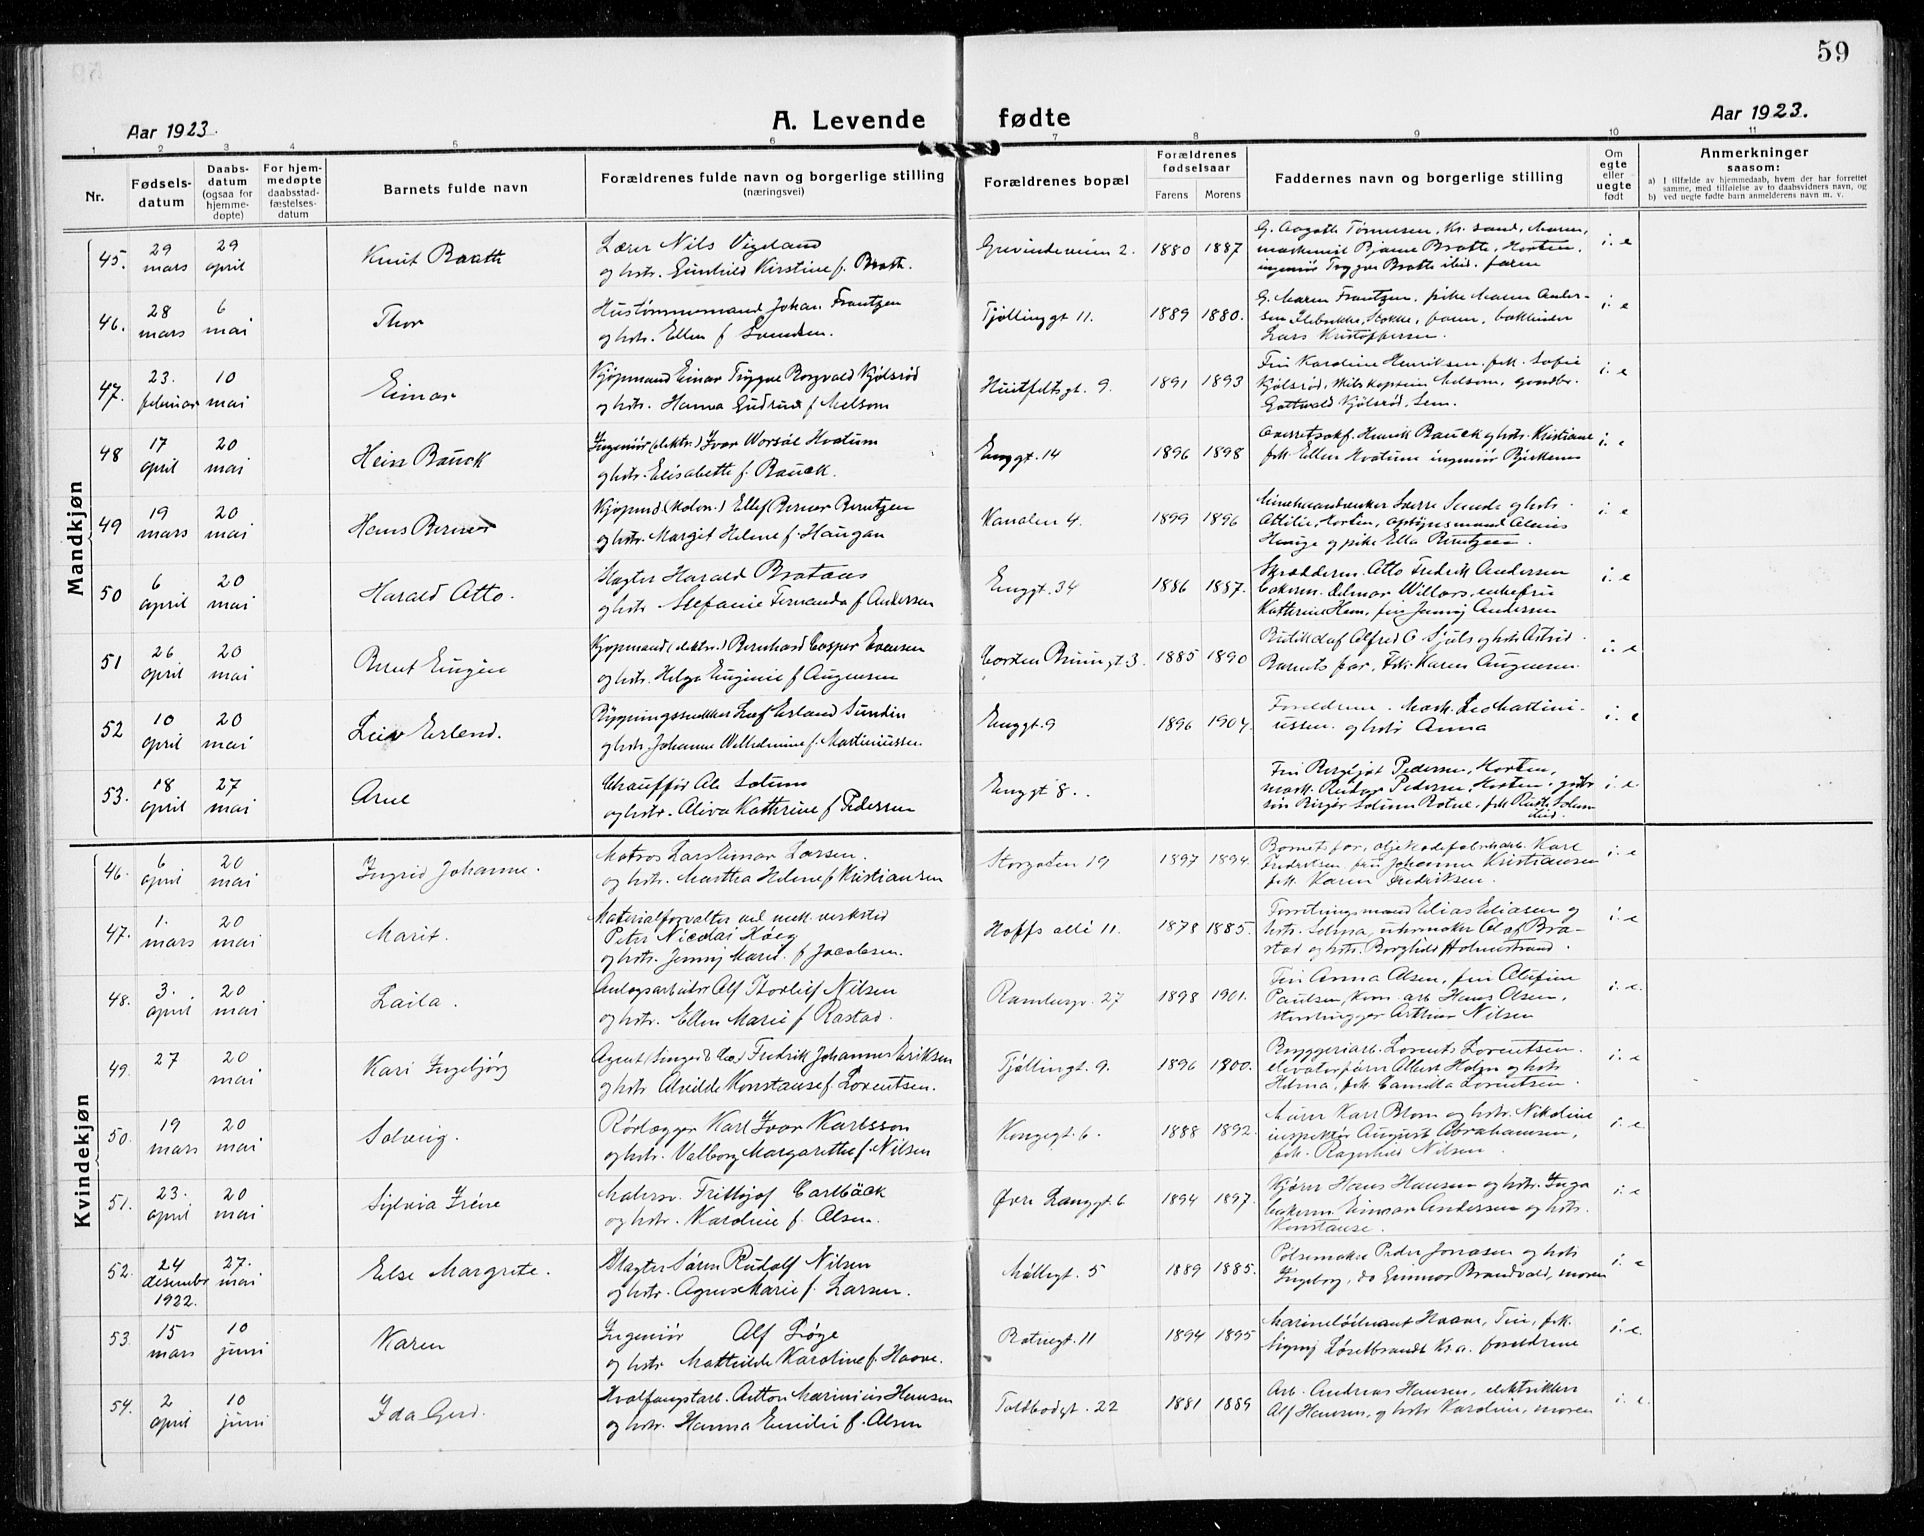 59
Aar 1923.
A. Levende fødte
Aar 1923.
1 2 3 4 5 6 7 8 9 10 11
Nr.
Fødsels-
datum
Daabs-
datum
(ogsaa for
hjemme-
døpte)
For hjem-
medøpte
daabsstad-
fæstelses-
datum
Barnets fulde navn
Forældrenes fulde navn og borgerlige stilling
(næringsvei)
Forældrenes bopæl
Forældrenes
fødselsaar
Farens Morens
Faddernes navn og borgerlige stilling
Om
egte
eller
uegte
født
Anmerkninger
saasom:
a) I tilfælde av hjemmedaab, hvem der har forrettet
samme, med tilføielse av to daabsvidners navn, og
b) ved uegte fødte barn anmelderens navn m. v.
Mandkjøn
45. 29 mars 29 april Knut Braath
Lærer Nils Vigeland
og hstr. Gunhild Kirstine f. Brath.
Grevindeveien 2. 1880 1887
Bjarne Bratte, Horten,
ingeniør Trygve Bratte ibid. faren
i. e
46. 28 mars 6 mai Thor
Hustømmermand Johan Frantzen
og hstr. Ellen f Svendsen.
Tjøllinggt 11. 1889 1880.
G. Maren Frantzen, pike Maren Ander-
sen, Stokke, faren,
Lars Kristoffersen.
i. e
47. 23. februar 10 mai Einar
Kjøpmand Einar Trygve Rosgvald Kjølsrød
og hstr. Hanna Gudrun f Melsom
Huitfeltsgt. 9. 1891 1893
Fru Karoline Henriksen, frk. Sofie
Kjølsrød, skibskaptein Melsom, gaardbr.
Gottwald Kjølsrød, Sem.
i. e
48 17 april 20 mai Hein Bauck
Ingeniør (elektr.) Ivar Worsøe Hvatum
og hstr. Elisabette f. Bauck.
Enggt. 14 1896 1898
Overretssakf. Henrik Bauck og hstr. Kristiane
frk. Ellen Hvatum ingeniør Bjerknes
i. e
49 19 mars 20 mai Hans Berner
Kjøpmd (kolon.) Ellef Berner Berntzen
og hstr. Margit Helene f. Haugan
Kanalen 4. 1899 1896
Sverre Sende og hstr.
Attilie, Horten,
Hauge og pike Ella Berntzen.
i. e
50 6 april 20 mai Harald Otto.
Slagter Harald Brataas
og hstr. Stefanie Fernanda f Andersen
Enggt. 34 1886 1887.
Skrædderm. Otto Fredrik Andersen
enkefru
Kathrine Hem, fru Jenny Andersen
i. e
51 26 april 20 mai Bernt Eugen
Kjøpmand (elektr.) Bernhard Casper Evensen
og hstr. Helga Eugenie f Augensen
Corten Bruungt 3. 1885 1890
Alfred O Sjuls og hstr Astrid.
Barnets far, frk. Karen Augensen.
i. e
52 10 april 20 mai Leiv Erland.
Bygningssnekker Leif Erland Sundin
og hstr. Johanne Wilhelmine f. Martiniussen
Enggt. 9 1896 1904.
Foreldrene. Mask. Leo Martini-
ussen. og hstr Anna
i. e
53. 18 april 27 mai Arne
Chauffør Ole Solum
og hstr. Oliva Kathrine f Pedersen
Enggt 8.
Fru Bergljot Pedersen, Horten,
mask. Pedersen, Horten.
Birger Solum Botne, frk. Solum
ibid.
i. e.
Kvindekjøn
46. 6 april 20 mai Ingrid Johanne.
Matros Lars Einar Larsen.
og hstr. Martha Helene f Kristiansen
Storgaten 19 1897 1894.
Barnets far, Karl
Fredriksen, fru Johanne Kristiansen
frk. Karen Fredriksen.
i. e
47. 1. mars 20 mai Marit.
Materialforvalter ved mek. verksted
Peter Nicolai Høeg
og hstr. Jenny Marie f Jacobsen.
Hoffs alle 11. 1878 1885.
Forretningsmand Elias Eliasen og
hstr. Selma, uhrmaker Olaf Bra-
stad og hstr. Borghild Holmestrand.
i. e
48. 3. april 20 mai Laila.
Anlegsarbeider Alf Thorleif Nilsen
og hstr. Ellen Marie f Rastad.
Ramberg v. 27 1898 1901.
Fru Anna Olsen, fru Olufine
Paulsen, kom. arb. Hans Olsen,
stenhugger Arthur Nilsen
i. e.
49. 27 20 mai Kari Ingebjørg
Agent (Singer & Co.) Fredrik Johannes Eriksen
og hstr. Alvilde Konstanse f Lorentsen.
Tjøllingt. 9. 1896 1900.
Bryggeriarb. Lorents Lorentsen.
elevatorfører Albert Holm og hstr
Helma, frk Camilla Lorentsen.
i. e
50. 19 mars 20 mai Solveig.
Rørlægger Karl Ivar Karlsson
og hstr. Valborg Margarethe f. Nilsen
Kongegt. 6. 1888 1892.
Murer Karl Blom og hstr. Nikoline
inspektør August Abrahamsen,
frk. Ragnhild Nilsen.
i. e
51. 23. april 20 mai Sylvia Iréne
Malersv. Frithjof Carlbäck
og hstr. Karoline f. Olsen.
Øvre Langgt 6 1894 1897.
Kjører Hans Hansen og hstr. Inga
bakerm. Einar Andersen og hstr.
Konstanse.
i. e
52. 24 desember 1922. 27. mai Else Margrete.
Slagter Søren Rudolf Nilsen
og hstr. Agnes Marie f. Larsen.
Møllegt. 5 1889 1885.
Pølsemaker Peder Jonassen og hstr
Ingeborg, do Gunnar Brandvold, moren
i. e
53. 15 mars 10 juni Karen
Ingeniør Alf Bøge
og hstr. Mathilde Karoline f. Haave.
Ratnegt. 11 1894 1895
Marineløitnant Haave, Fru, frk.
Signy Løsetbrandt Kr.a. foreldrene
i. e.
54. 2 april 10 juni Ida Gerd.
Hvalfangstarb. Anton Marinius Hansen
og hstr. Hanna Emilie f. Olsen
Toldbodgt. 22 1881 1889
Arb. Andreas Hansen, elektriker
Alf Hansen, og hstr Karoline, moren
i. e.